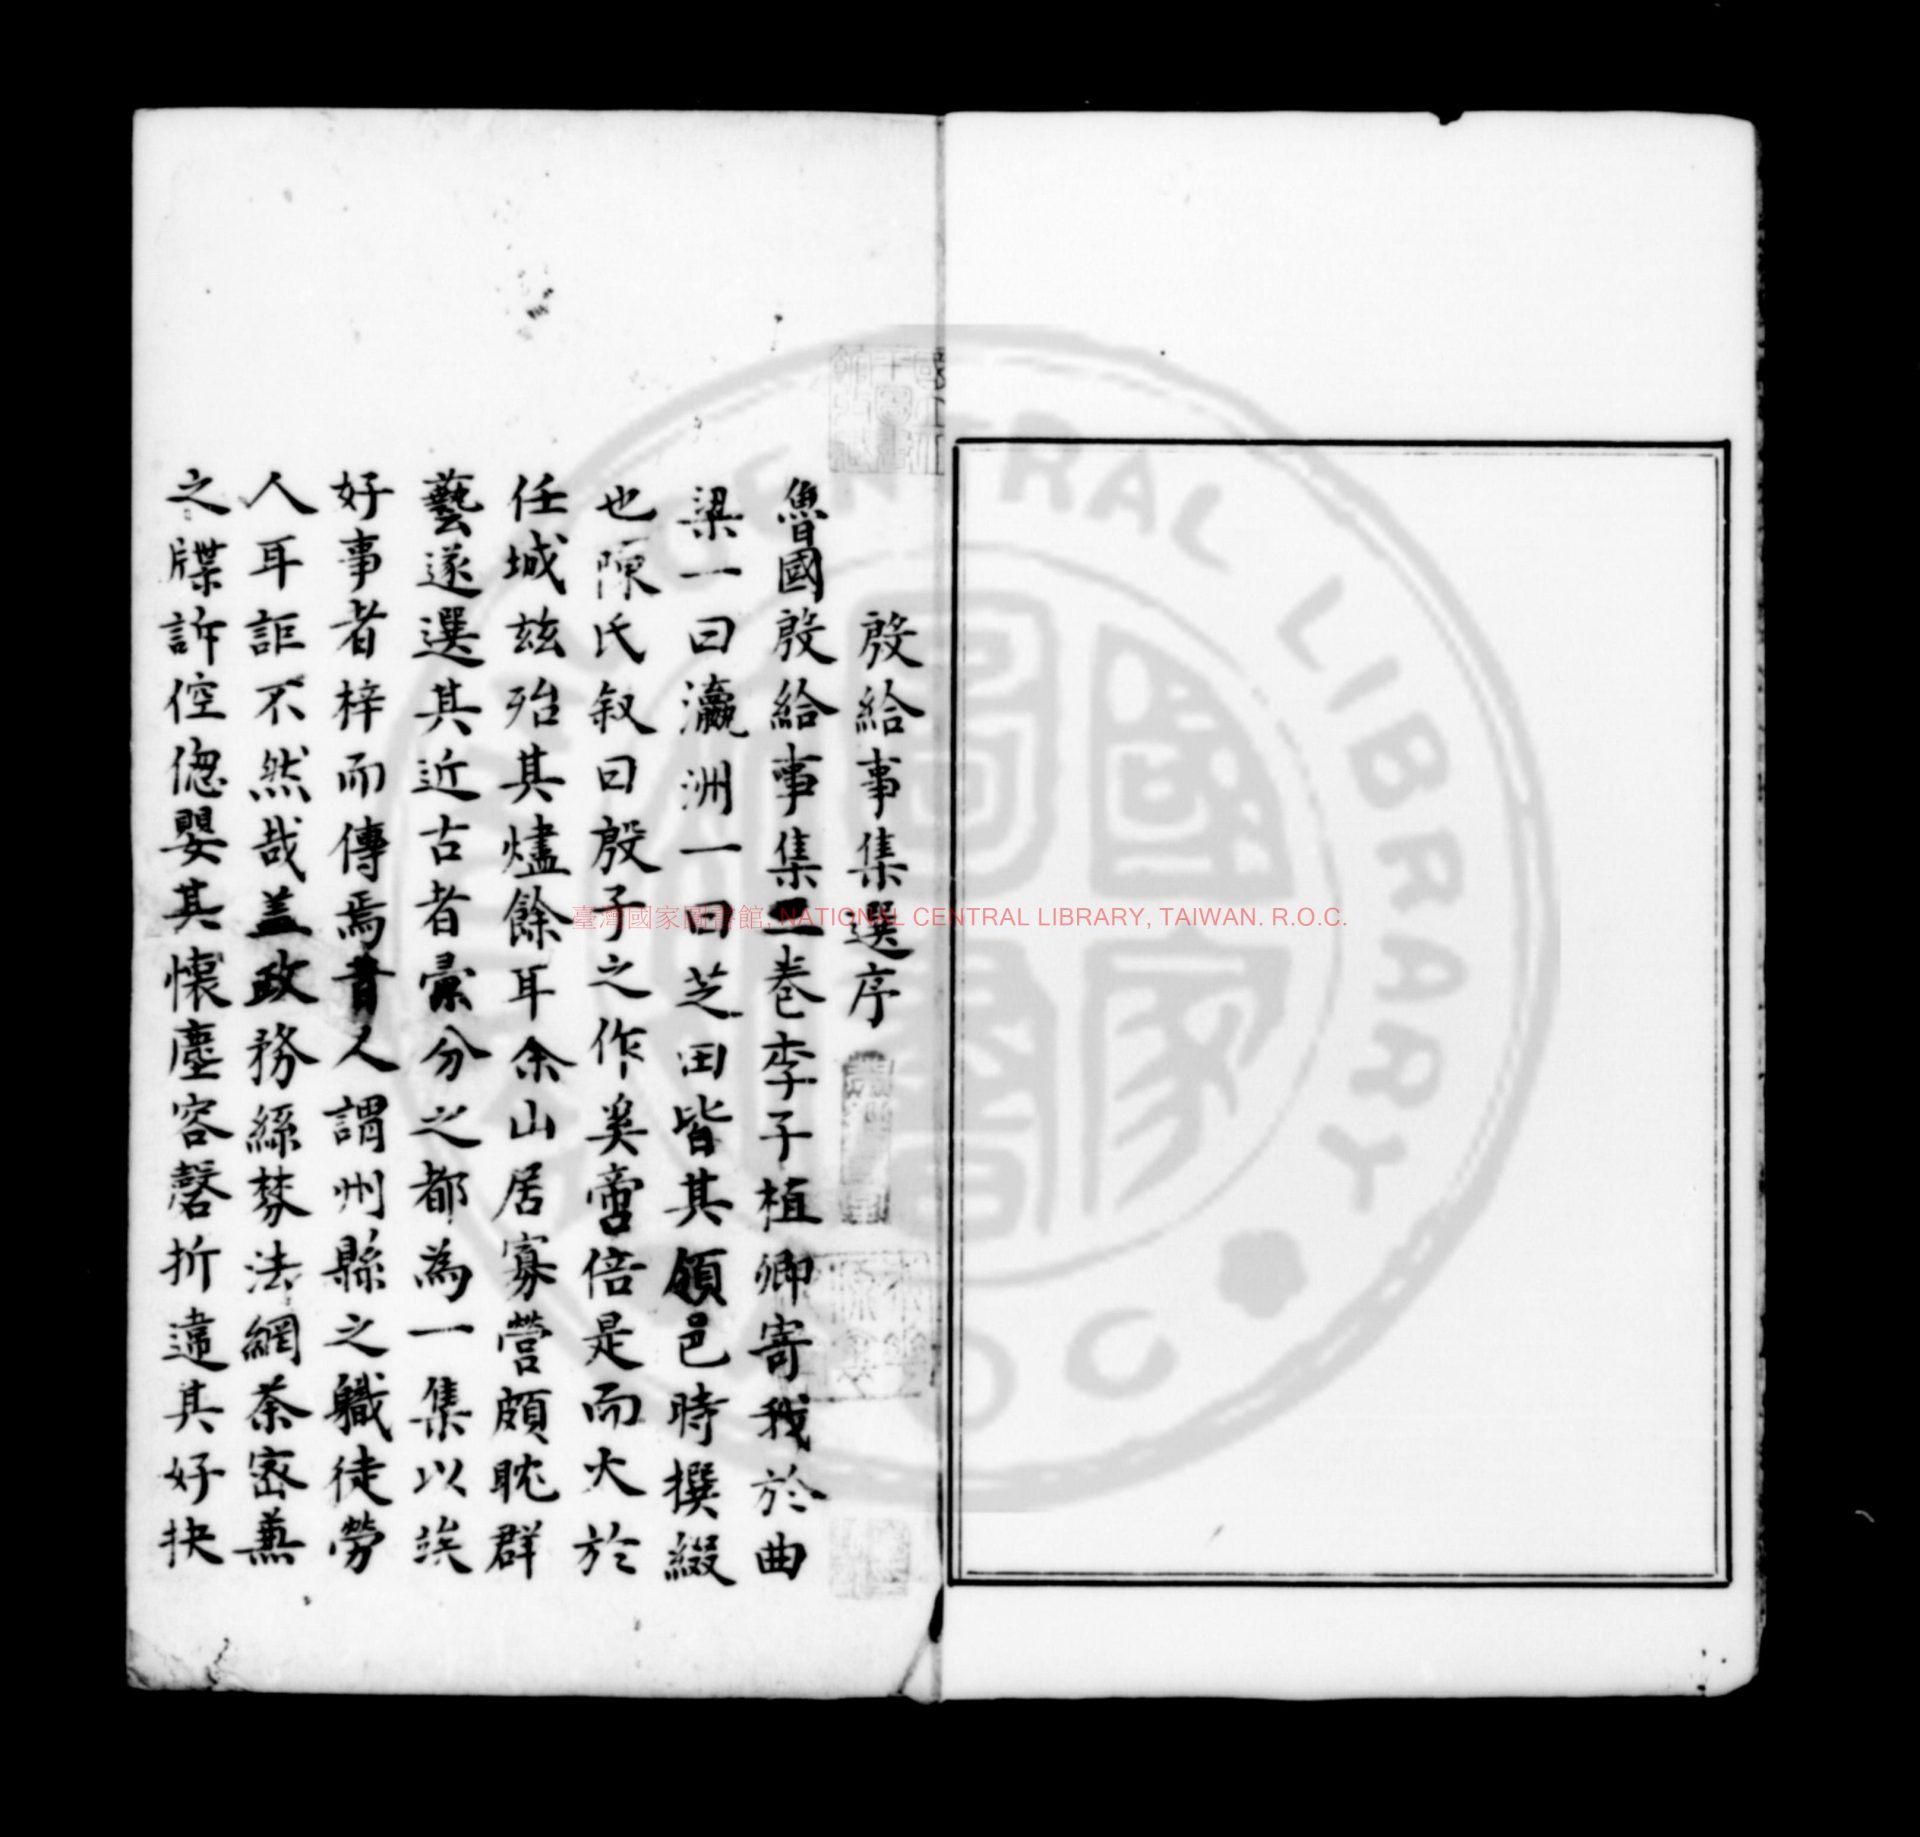 殷給事集選序
魯國殷給事集二卷李子植卿寄我於曲
梁一曰瀛洲一曰芝田皆其領邑時撰綴
也陳氏叙曰殷子之作奚啻倍是而火於
任城玆殆其燼餘耳余山居寡營頗耽群
藝遂選其近古者彚分之都為一集以竢
好事者梓而傳焉昔人謂州縣之職徒勞
人耳詎不然哉盖政務絲棼法網荼密蕪
之牒訴倥偬嬰其懷塵容磬折違其好抉
臺灣國家圖書館, NATIONAL CENTRAL LIBRARY, TAIWAN. R.O.C.
CENTRAL LIBRARY
國家圖書